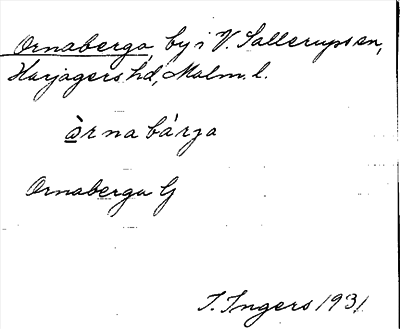 Ornaberga, by i V. Sallerups sn,
Harjagers hd, Malm. l.
àr na bárga
Ornaberga G
I. Ingers 1931